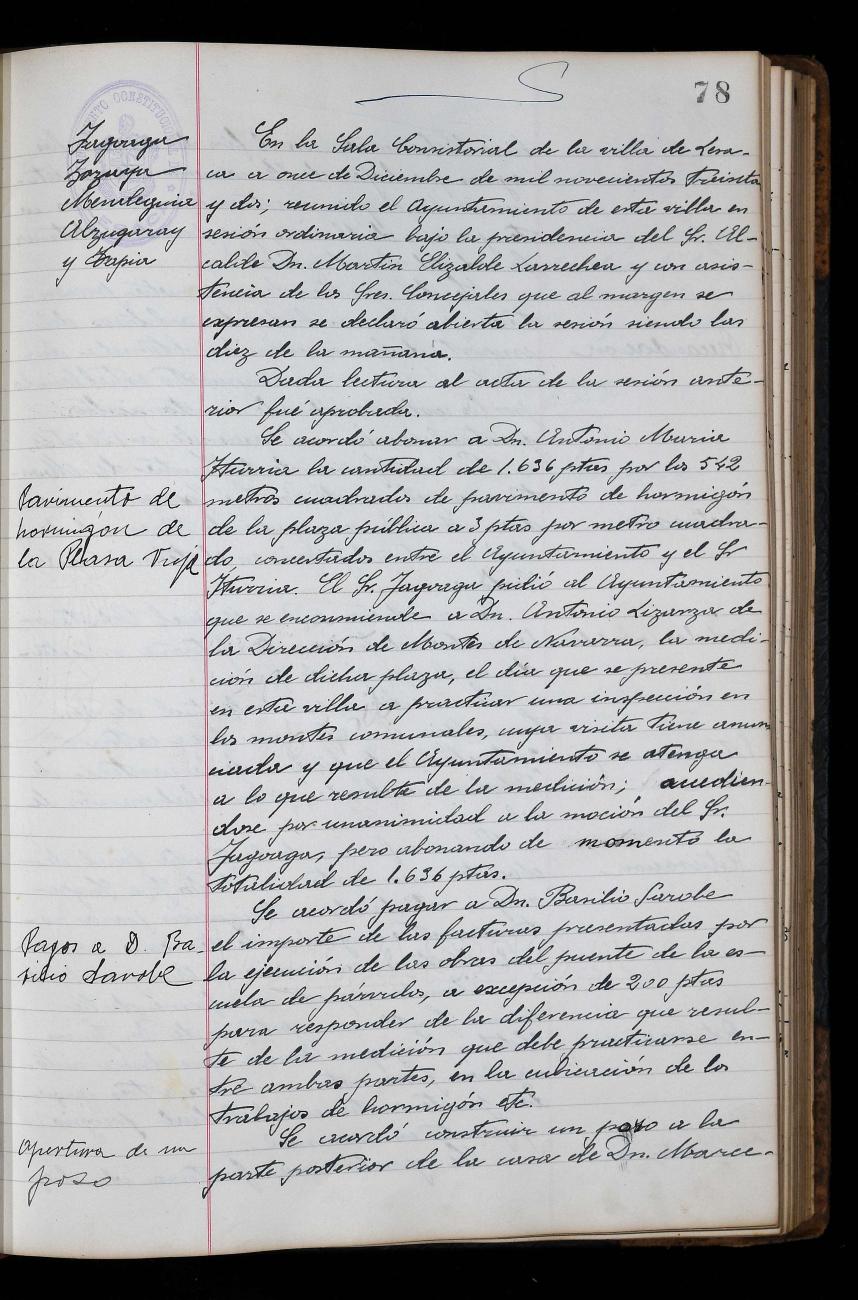 78
Jagoaga
Zozaya
Mendeguia
Alzugaray
y Tapia
En la Sala Consistorial de la villa de Lesa-
ca a once de Diciembre de mil novecientos treinta
y dos; reunido el Ayuntamiento de esta villa en
sesión ordinaria bajo la presidencia del Sr. Al-
calde Dn. Martín Elizalde Larrechea y con asis-
tencia de los Sres. Concejales que al margen se
expresan se declaró abierta la sesión siendo las
diez de la mañana.
Dada lectura al acta de la sesión ante-
rior fué aprobada.
Se acordó abonar a Dn. Antonio Maria
Iturria la cantidad de 1.636 ptas por los 542
Pavimento de
hormigón de
la Plaza Vieja
metros cuadrados de pavimento de hormigón
de la plaza pública a 3 ptas por metro cuadra-
do, concertados entre el Ayuntamiento y el Sr
Iturria. El Sr. Jagoaga pidió al Ayuntamiento
que se encomiende a Dn. Antonio Lizanza de
la Dirección de Montes de Navarra, la medi-
ción de dicha plaza, el día que se presente
en esta villa a practicar una inspección en
los montes comunales, cuya visita tiene anun
ciada y que el Ayuntamiento se atenga
a lo que resulte de la medición; accedien-
dose por unanimidad a la moción del Sr.
Jagoaga, pero abonando de momento la
totalidad de 1.636 ptas.
Se acordó pagar a Dn. Basilio Sarobe
Pagos a D. Ba-
silio Sarobe
el importe de las facturas presentadas por
la ejecución de las obras del puente de la es-
cuela de párvulos, a excepción de 200 ptas
para responder de la diferencia que resul-
te de la medición que debe practicarse en-
tre ambas partes, en la cubicación de los
trabajos de hormigón etc.
Apertura de un
poso
Se acordó construir un pozo a la
parte posterior de la casa de Dn. Marce-